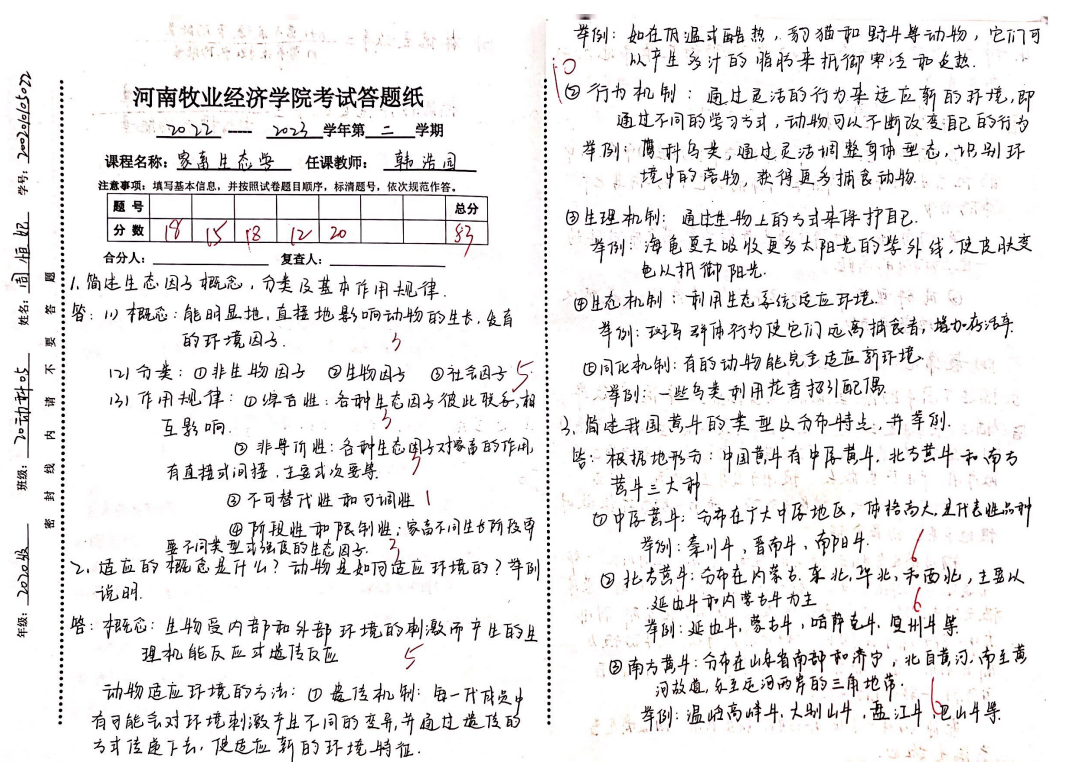 河南牧业经济学院考试答题纸
2022 ---- 2023 学年第 二 学期
课程名称: 家畜生态学 任课教师: 韩浩园
注意事项: 填写基本信息, 并按照试卷题目顺序, 标清题号, 依次规范作答。
题 号 总分
分 数 18 15 18 12 20 83
合分人: 复查人:
年级: 2020级 班级: 20动科05 姓名: 周恒妃 学号: 20020105022
密 封 线 内 请 不 要 答 题
1. 简述生态因子概念, 分类及基本作用规律.
答: (1) 概念: 能明显地, 直接地影响动物的生长, 发育
的环境因子. 3
(2) 分类: ①非生物因子 ②生物因子 ③社会因子 5
(3) 作用规律: ①综合性: 各种生态因子彼此联系, 相
互影响. 3
② 非等价性: 各种生态因子对家畜的作用
有直接或间接, 主要或次要等. 3
③ 不可替代性和可调性 1
④阶段性和限制性: 家畜不同生长阶段需
要不同类型或强度的生态因子. 3
2. 适应的概念是什么? 动物是如何适应环境的? 举例
说明.
答: 概念: 生物受内部和外部环境的刺激而产生的生
理机能反应或遗传反应 5
动物适应环境的方法: ① 遗传机制: 每一代成员中
有可能会对环境刺激产生不同的变异, 并通过遗传的
方式传递下去, 使适应新的环境特征.
举例: 如在低温或酷热, 豹猫和野牛等动物, 它们可
以产生多汁的脂肪来抵御寒冷和炎热.
10
② 行为机制: 通过灵活的行为来适应新的环境, 即
通过不同的学习方式, 动物可以不断改变自己的行为
举例: 鹰科鸟类, 通过灵活调整身体型态, 识别环
境中的落物, 获得更多捕食动物.
③生理机制: 通过生物上的方式来保护自己.
举例: 海龟夏天吸收更多太阳光的紫外线, 使皮肤变
色以抵御阳光.
④生态机制: 利用生态系统适应环境.
举例: 斑马群体行为使它们远离捕食者, 增加存活率
⑤同化机制: 有的动物能完全适应新环境.
举例: 一些鸟类利用花香招引配偶.
3. 简述我国黄牛的类型及分布特点, 并举例.
答: 根据地形分: 中国黄牛有中原黄牛, 北方黄牛和南方
黄牛三大种
① 中原黄牛: 分布在广大中原地区, 体格高大, 是代表性品种
举例: 秦川牛, 晋南牛, 南阳牛. 6
② 北方黄牛: 分布在内蒙古, 东北, 华北, 和西北, 主要以
延边牛和内蒙古牛为主 6
举例: 延边牛, 蒙古牛, 哈萨克牛, 复州牛等.
③南方黄牛: 分布在山东省南部和济宁, 北自黄河, 南至黄
河故道, 东至运河两岸的三角地带.
举例: 温岭高峰牛, 大别山牛, 盘江牛, 巴山牛等. 6